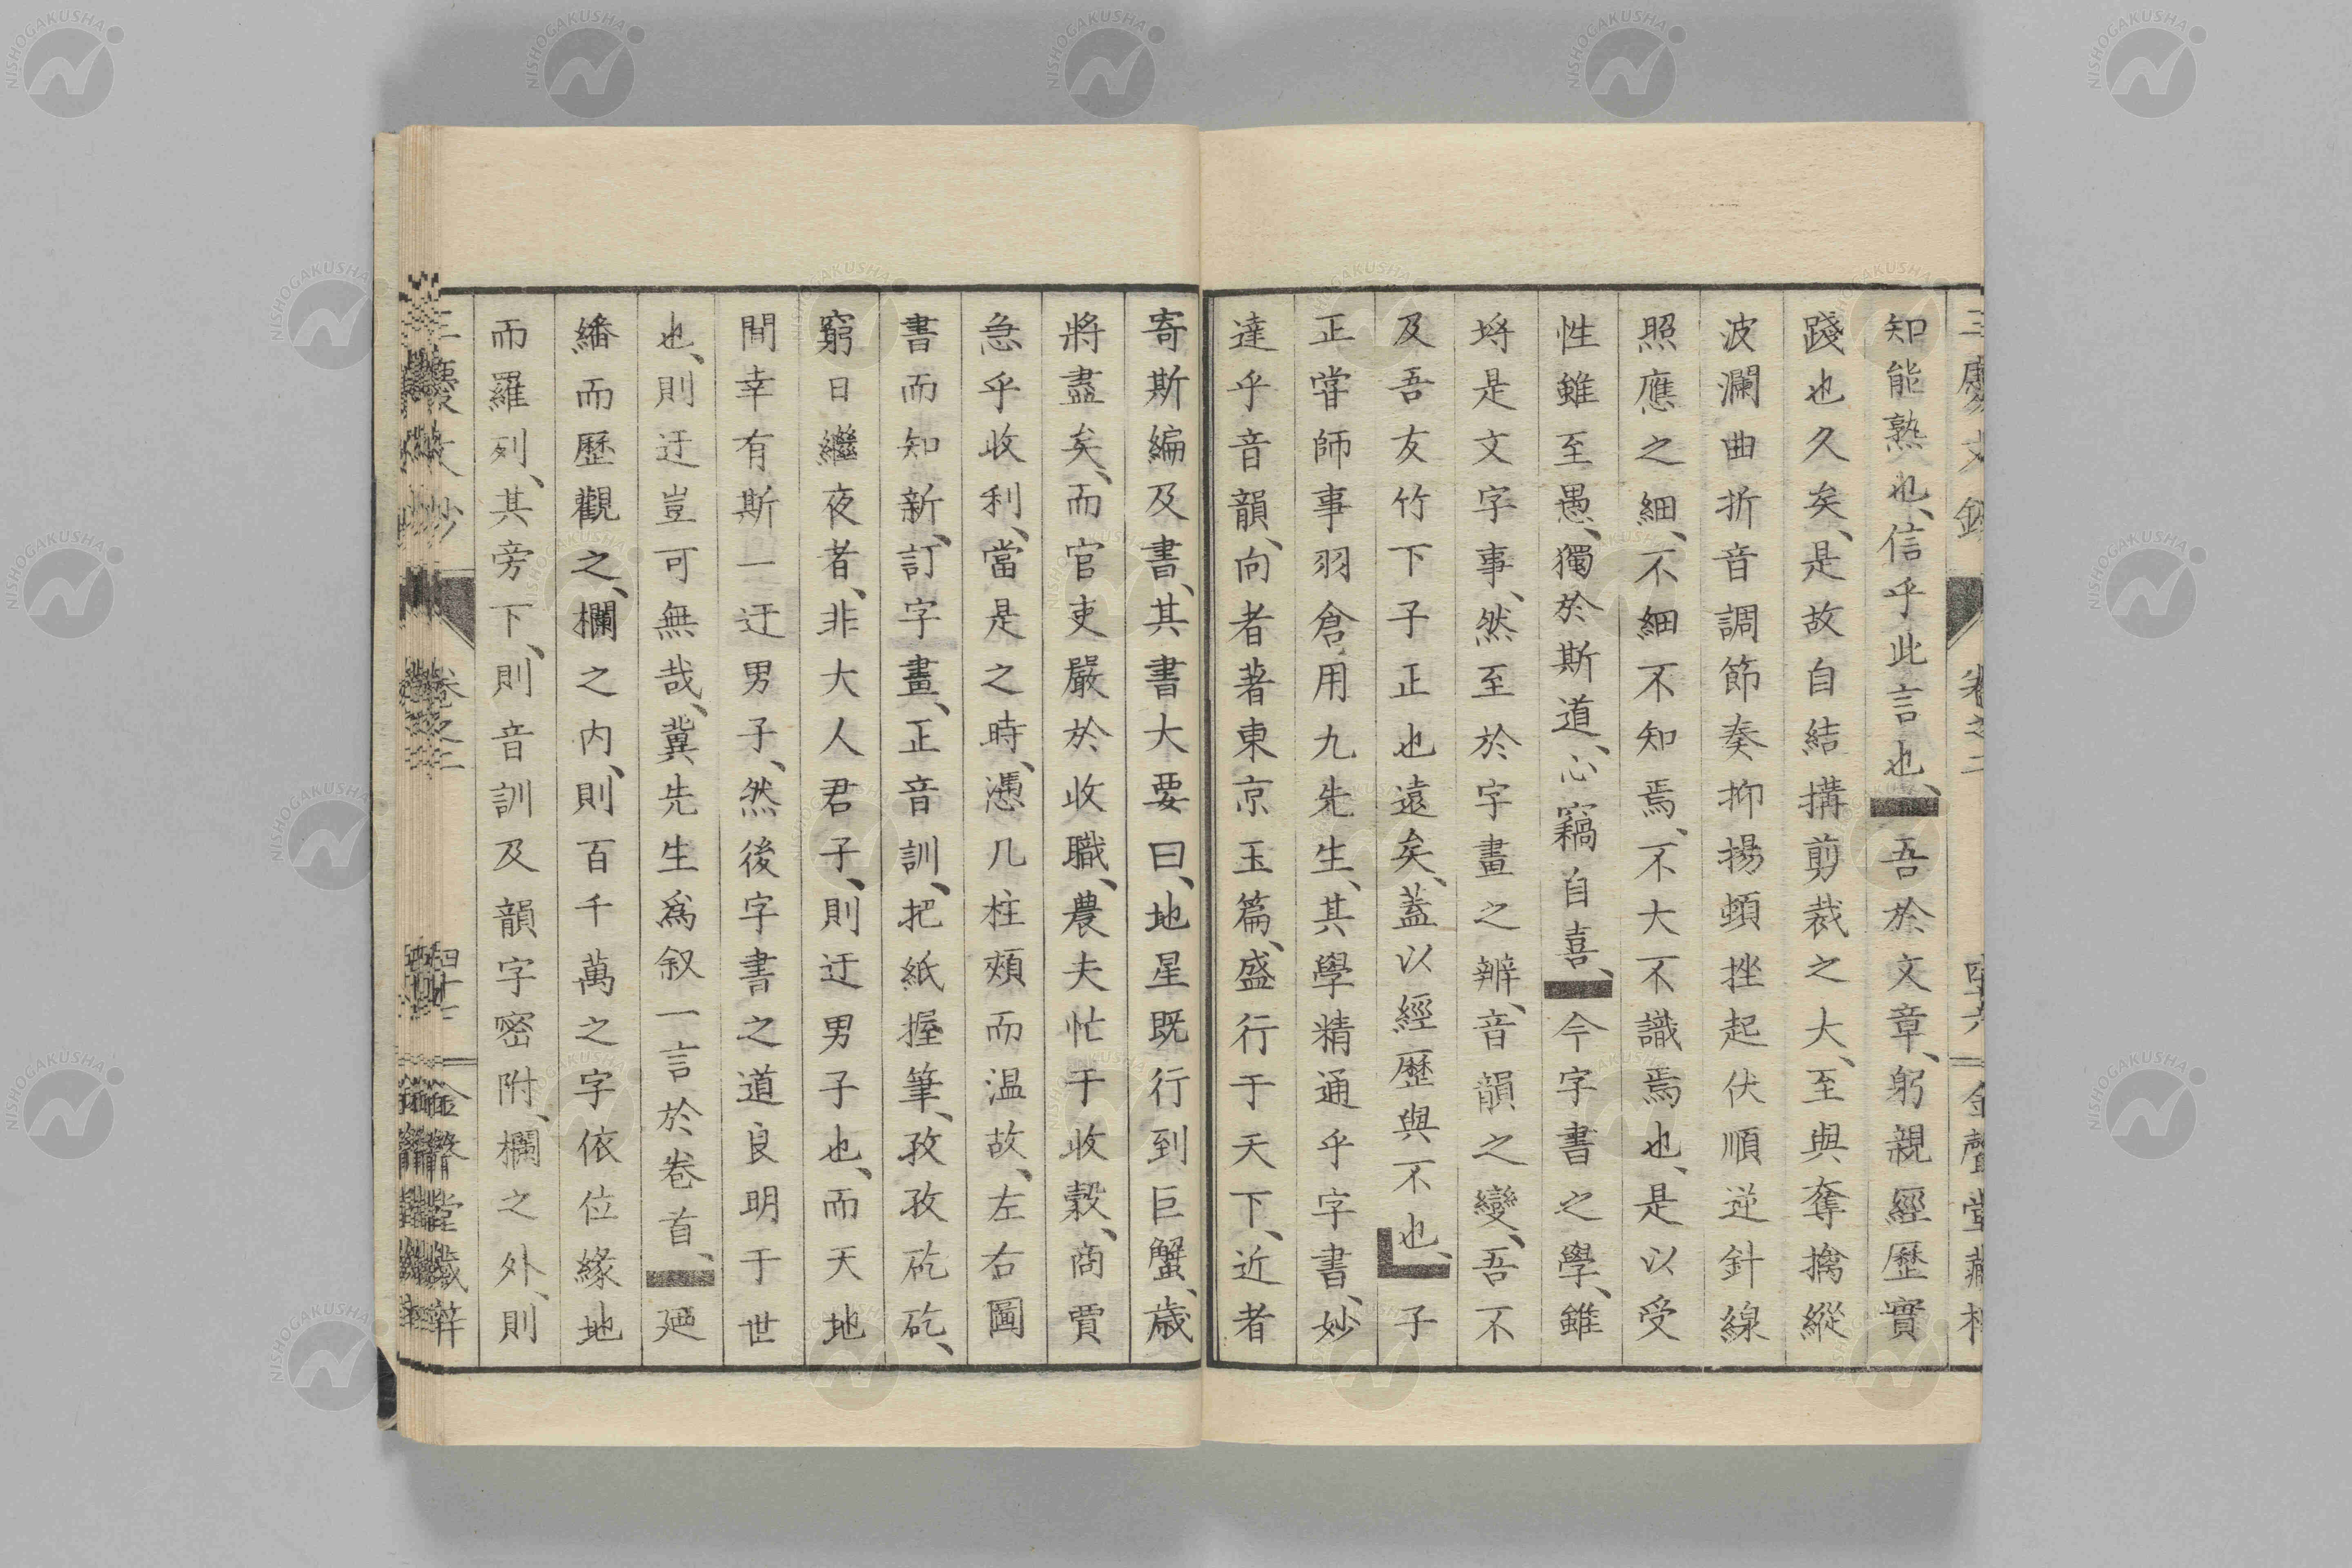 知能熟也、信乎此言也、吾於文章、躬親經歷實
踐也久矣、是故自結搆剪裁之大、至與奪擒縱
波瀾曲折音調節奏抑揚頓挫起伏順逆針線
照應之細、不細不知焉、不大不識焉也、是以受
性雖至愚、獨於斯道、心竊自喜、今字書之學、雖
均是文字事、然至於字畫之辨、音韻之變、吾不
及吾友竹下子正也遠矣、蓋以經歷與不也、子
正嘗師事羽倉用九先生、其學精通乎字書、妙
達乎音韻、向者著東京玉篇、盛行于天下、近者
寄斯編及書、其書大要曰、地星既行到巨蟹、歳
將盡矣、而官吏嚴於收職、農夫忙于收穀、商賈
急乎收利、當是之時、憑几柱頰而温故、左右圖
書而知新、訂字畫、正音訓、把紙握筆、孜孜矻矻、
窮日繼夜者、非大人君子、則迂男子也、而天地
間幸有斯一迂男子、然後字書之道良明于世
也、則迂豈可無哉、冀先生爲叙一言於卷首、廼
繙而歷觀之、欄之内、則百千萬之字依位緣地
而羅列、其旁下、則音訓及韻字密附、欄之外、則